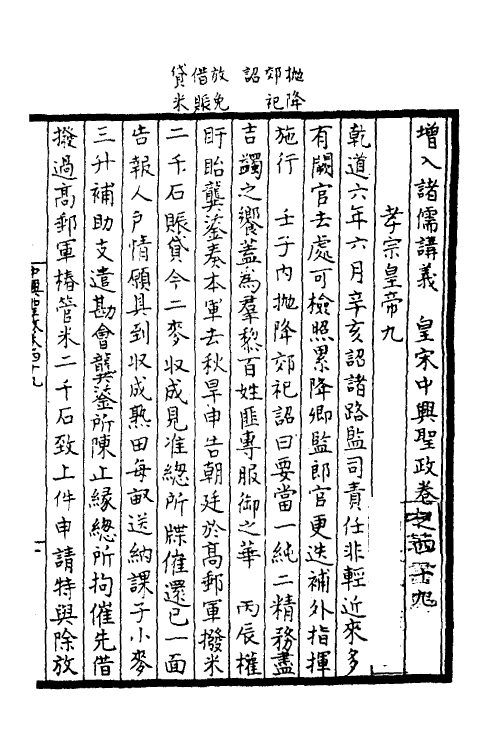 抛降
郊祀
詔
放免
借賑
貸米
增入諸儒講義　皇宋中興聖政卷之四十九
孝宗皇帝九
乾道六年六月辛亥詔諸路監司責任非輕近來多
有闕官去處可檢照累降卿監郎官更迭補外指揮
施行　壬子內抛降郊祀詔曰要當一純二精務盡
吉蠲之饗蓋為羣黎百姓匪專服御之華　丙辰權
盱眙龔鋈奏本軍去秋旱申告朝廷於高郵軍撥米
二千石賑貸今二麥收成見准總所牒催還已一面
告報人戶情願具到收成熟田每畝送納課子小麥
三升補助支遣勘會龔鋈所陳止緣總所拘催先借
撥過高郵軍樁管米二千石致上件申請特與除放
中興聖政卷四十九
一